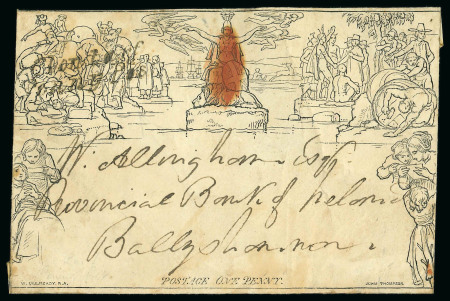 W. Allingham Esqr.
Provincial Bank of Ireland
Ballyshannon
POSTAGE ONE PENNY.
W. MULREADY, R.A.
JOHN THOMPSON